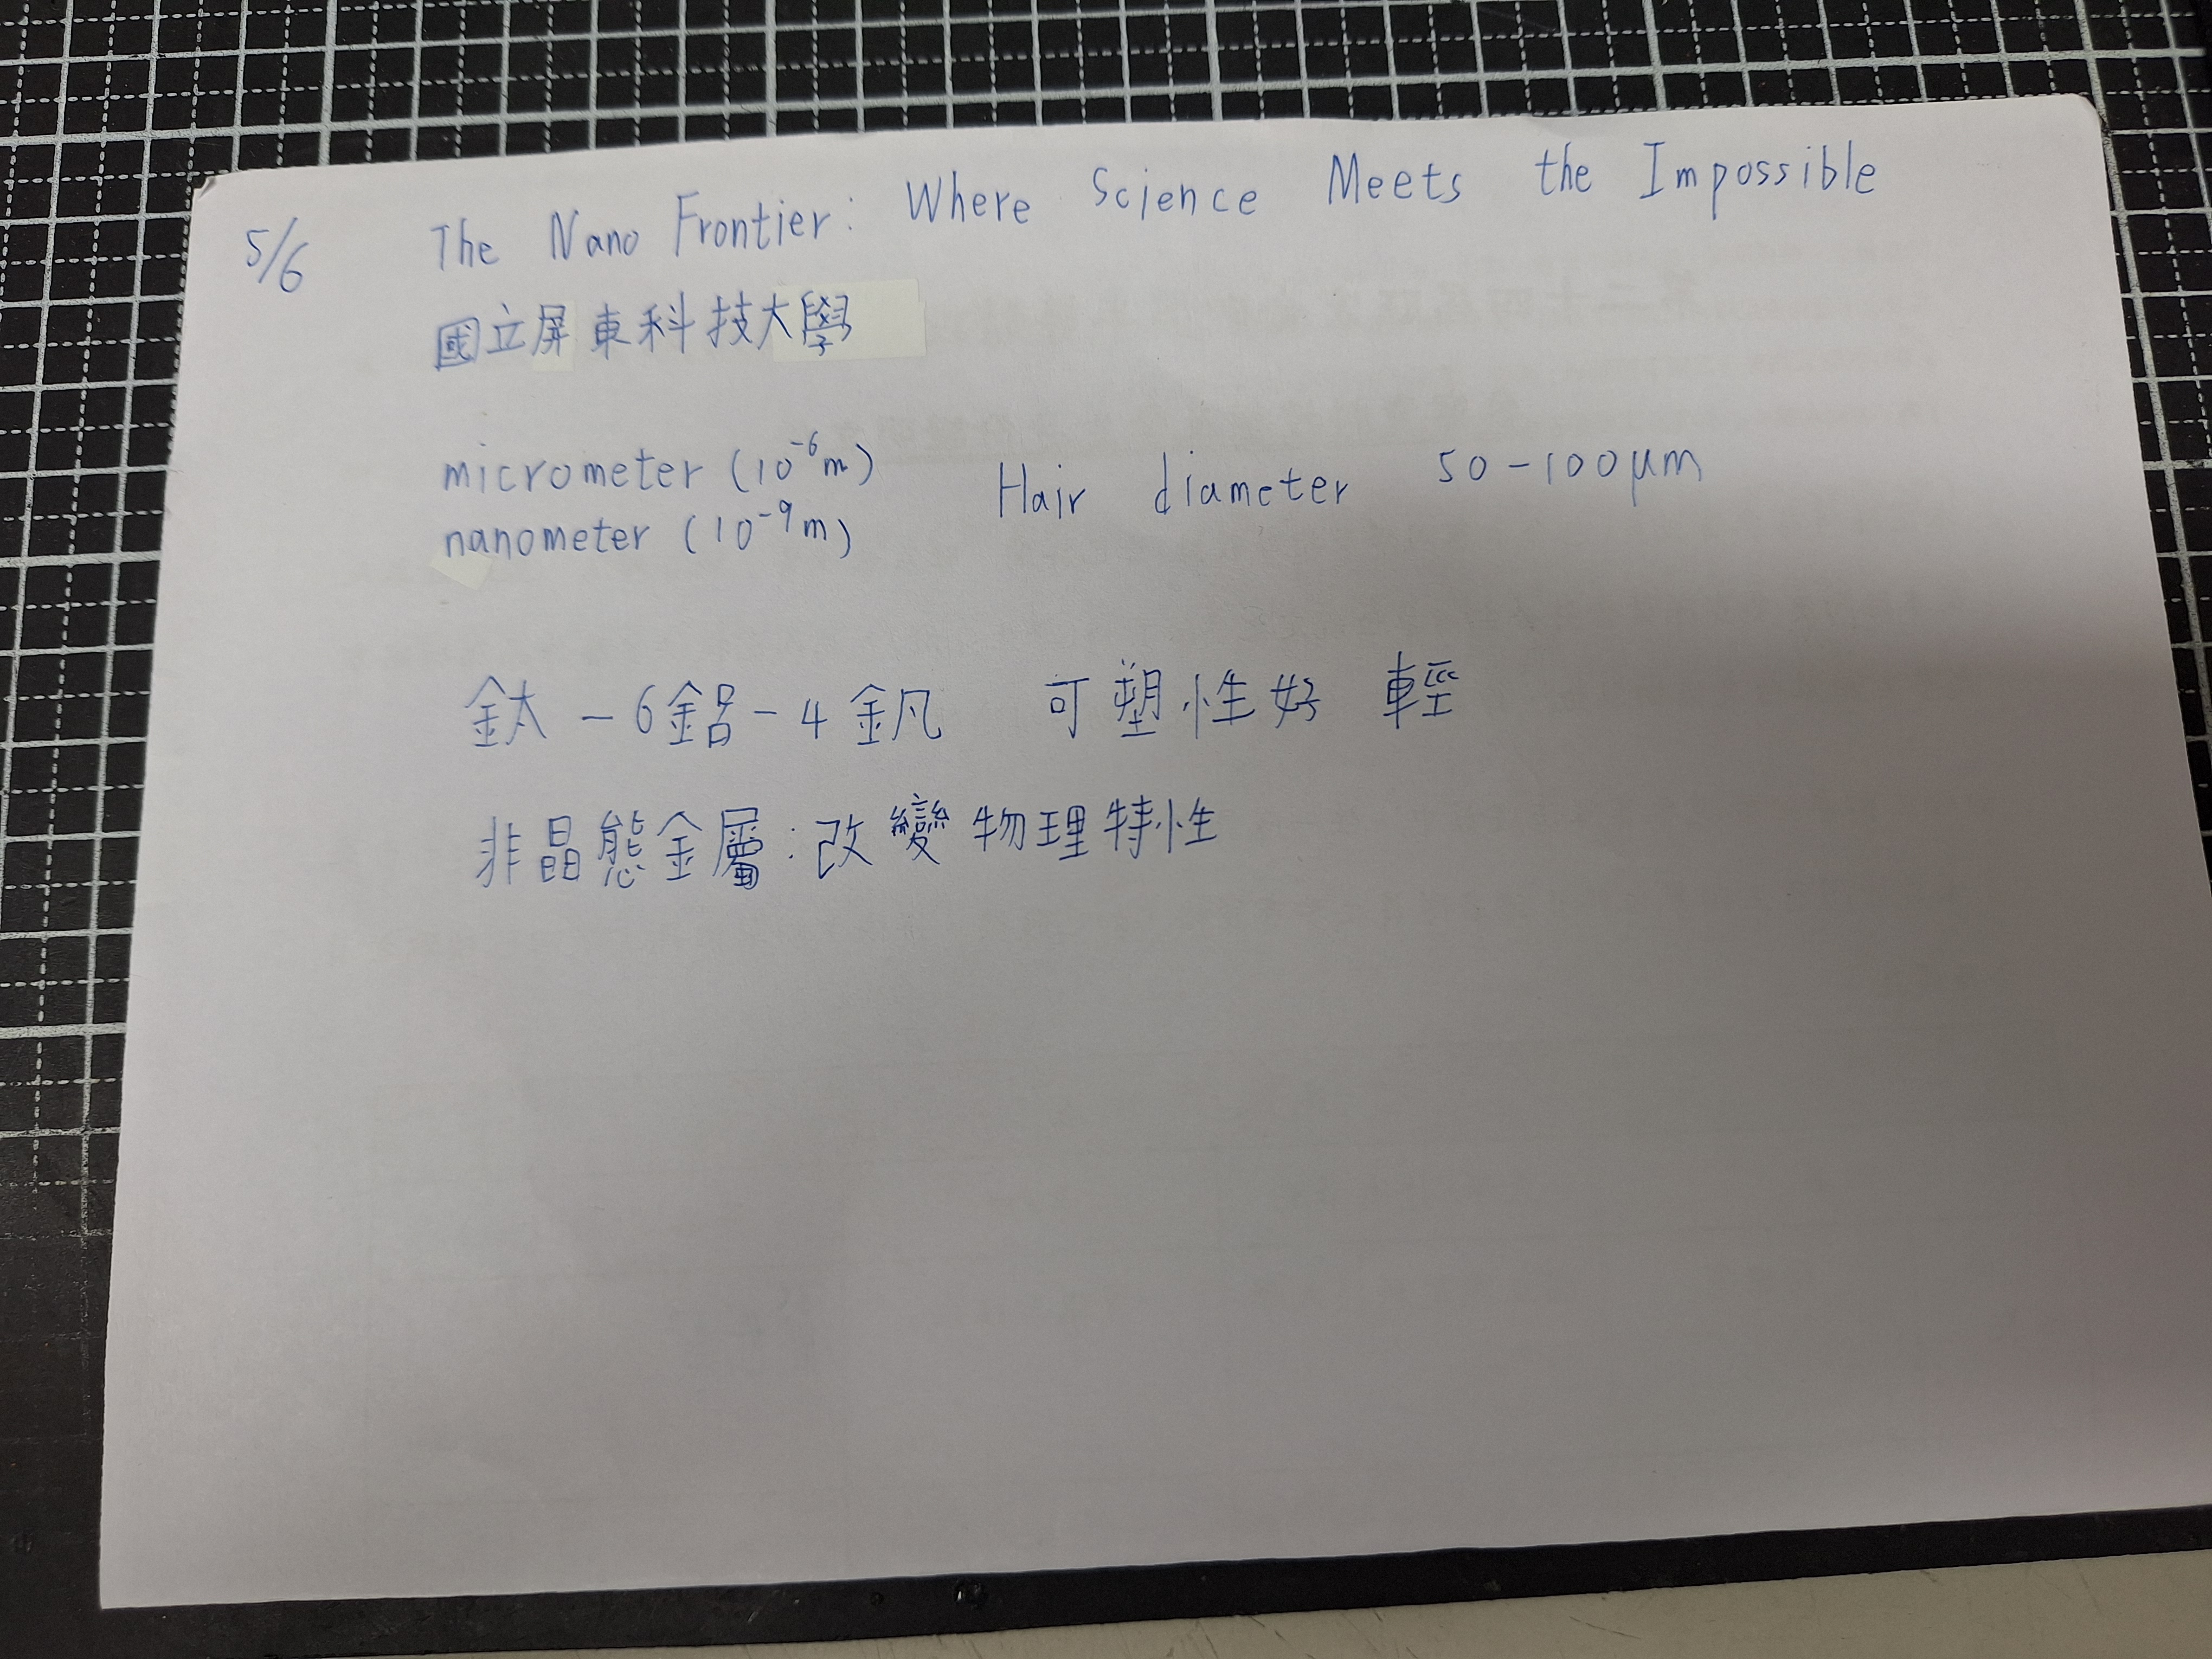 5/6 The Nano Frontier: Where Science Meets the Impossible
國立屏東科技大學
micrometer (10⁻⁶m) Hair diameter 50-100μm
nanometer (10⁻⁹m)
鈦-6鋁-4釩 可塑性好 輕
非晶態金屬:改變物理特性